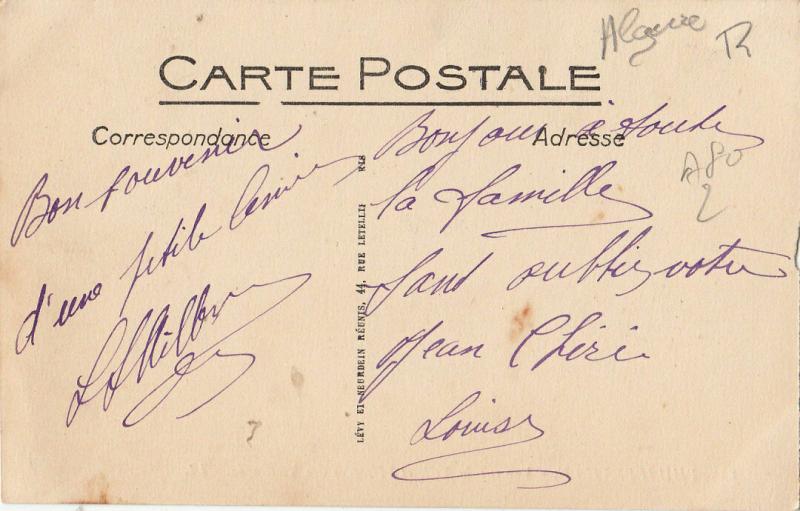 Algerie TR
CARTE POSTALE
Correspondance
Adresse
Bon souvenir
d'une petite amie
Bonjour à toute
la famille
sant oublier votre
Jean Chéri
Louise
A80
2
LÉVY ET NEURDEIN RÉUNIS, 44, RUE LETELLIER